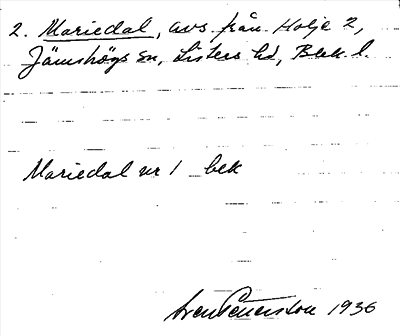 2. Mariedal, avs. från Holje 2,
Jämshögs sn, Listers hd, Blek. l.
Mariedal nr 1 bek
1936